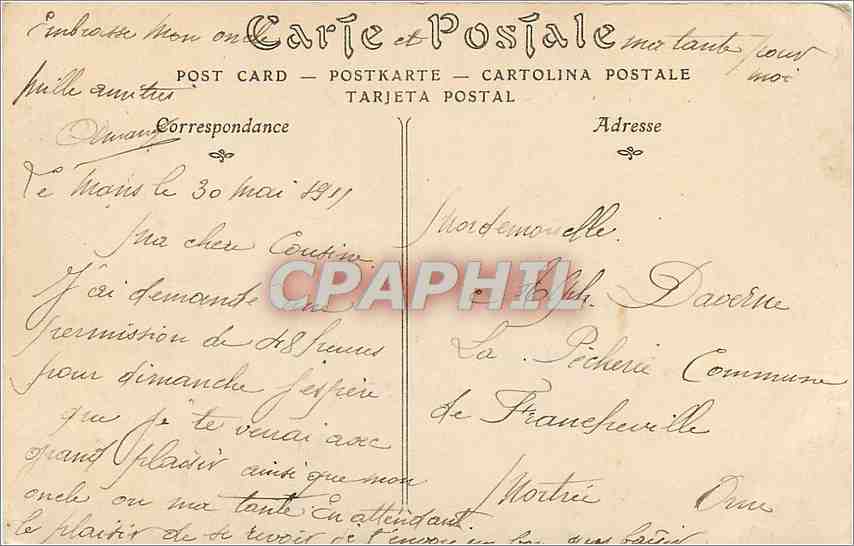 Embrasse mon oncle et ma tante pour moi
mille amitiés
Carte Postale
POST CARD — POSTKARTE — CARTOLINA POSTALE
TARJETA POSTAL
Correspondance
Le Mans le 30 mai 1911
Ma cher Cousine
J'ai demande une
permission de 48 heures
pour dimanche j'espère
que je te verai avec
grand plaisir ainsi que mon
oncle ou ma tante En attendant
le plaisir de se revoir je t'envoi un bon gros baiser
Adresse
Mordemoiselle
Dolph. Daverne
La Pécherie Commune
de Francheville
Mortrée Orne
CPAPHIL